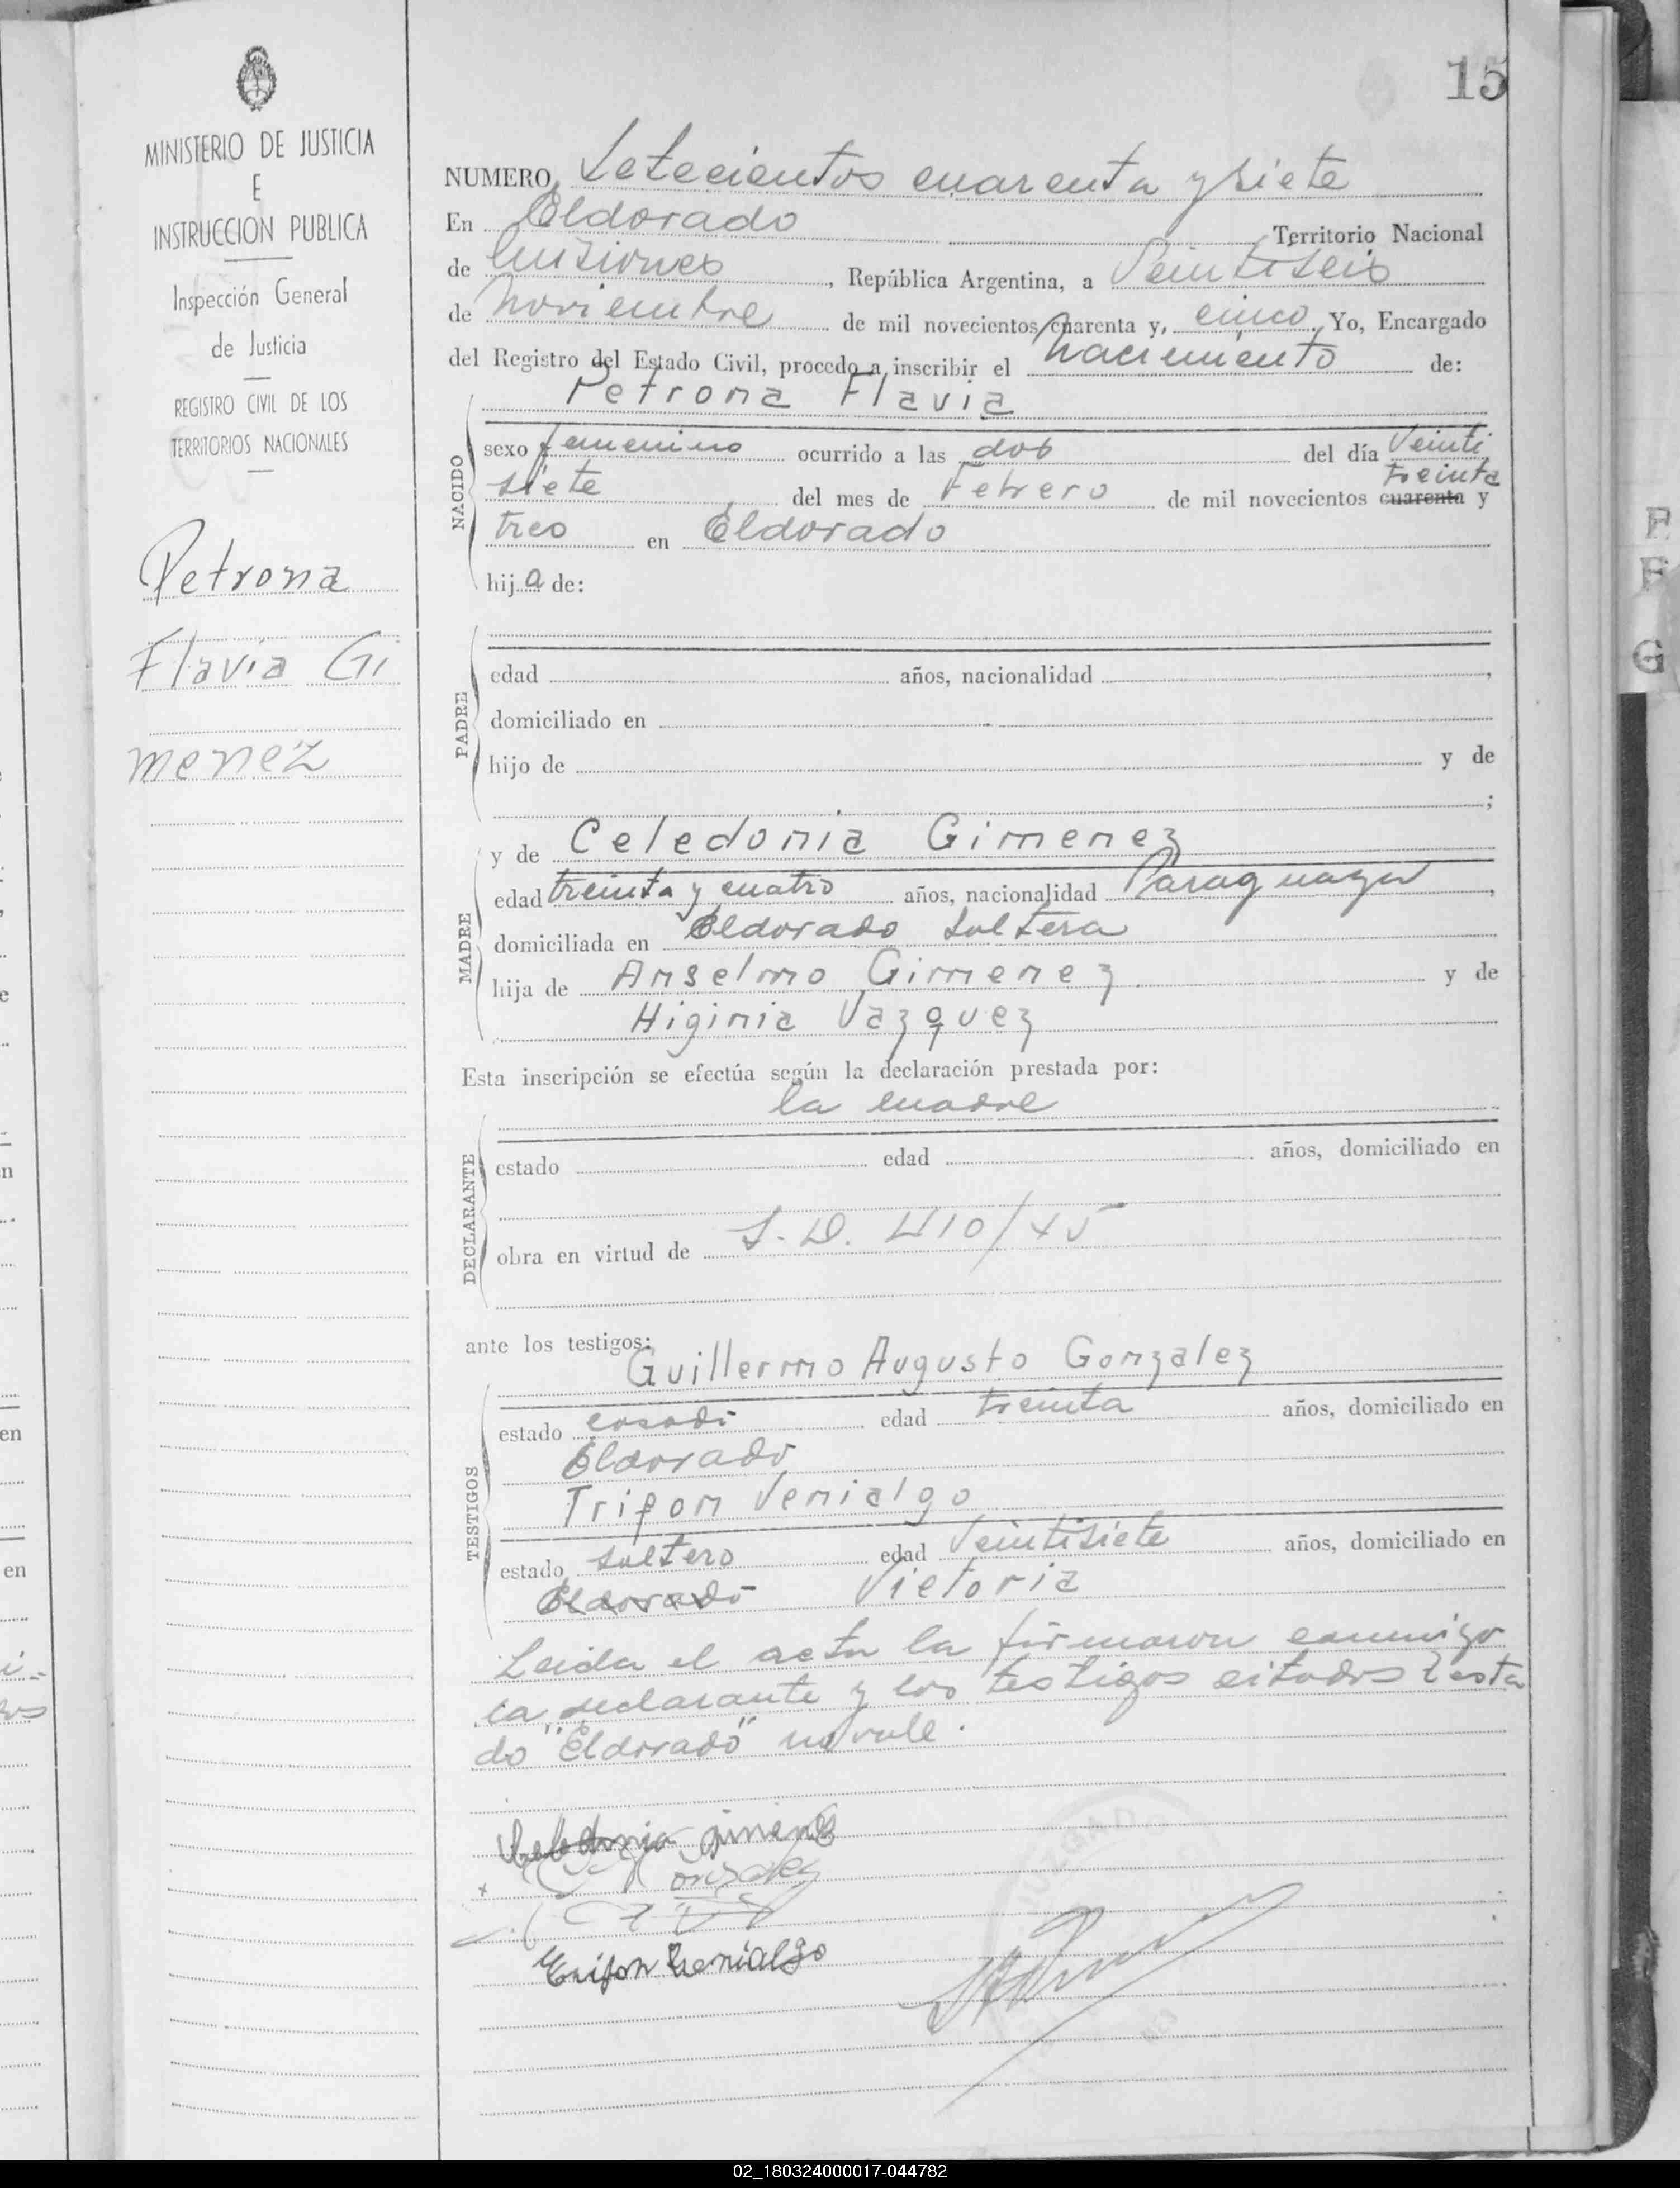 15
MINISTERIO DE JUSTICIA
E
INSTRUCCION PUBLICA
Inspección General
de Justicia
REGISTRO CIVIL DE LOS
TERRITORIOS NACIONALES
Petrona
Flavia Gi
menez
NUMERO, Setecientos cuarenta y siete
En Eldorado Territorio Nacional
de Misiones, República Argentina, a Veintiseis
de Noviembre de mil novecientos cuarenta y, cinco. Yo, Encargado
del Registro del Estado Civil, procedo a inscribir el Nacimiento de:
Petrona Flavia
NACIDO
sexo femenino ocurrido a las dos del día Veinti
treinta
siete del mes de Febrero de mil novecientos cuarenta y
tres en Eldorado
hija de:
PADRE
edad años, nacionalidad ,
domiciliado en
hijo de y de
;
y de Celedonia Gimenez
MADRE
edad treinta y cuatro años, nacionalidad Paraguaya ,
domiciliada en Eldorado soltera
hija de Anselmo Gimenez y de
Higinia Vazquez
Esta inscripción se efectúa según la declaración prestada por:
la madre
DECLARANTE
estado edad años, domiciliado en
obra en virtud de 410/45
ante los testigos:
Guillermo Augusto Gonzalez
TESTIGOS
estado casado edad treinta años, domiciliado en
Eldorado
Trifon Venialgo
estado soltero edad Veintisiete años, domiciliado en
Eldorado Victoria
Leida el acta la firmaron conmigo
la declarante y los testigos citados Testa
do "Eldorado" no vale.
Celedonia Jimenez
Trifon Venialgo
02_180324000017-044782